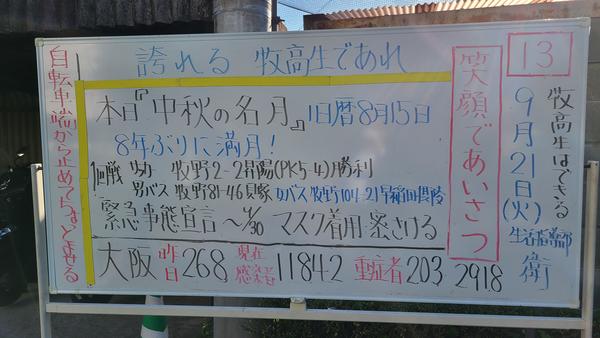 誇れる 牧高生であれ
13
牧高生はできる
9月21日(火)
生活指導部
衛
笑顔であいさつ
本日『中秋の名月』旧暦8月15日
8年ぶりに満月!
1回戦 牧野2-2昇陽(PK5-4)勝利
男バス 牧野81-46貝塚 女バス 牧野104-21早稲田摂陵
緊急事態宣言〜9/30 マスク着用 密さける
大阪 昨日268 現在感染者11842 重症者203 2918
自転車端から止めてちょとよせる